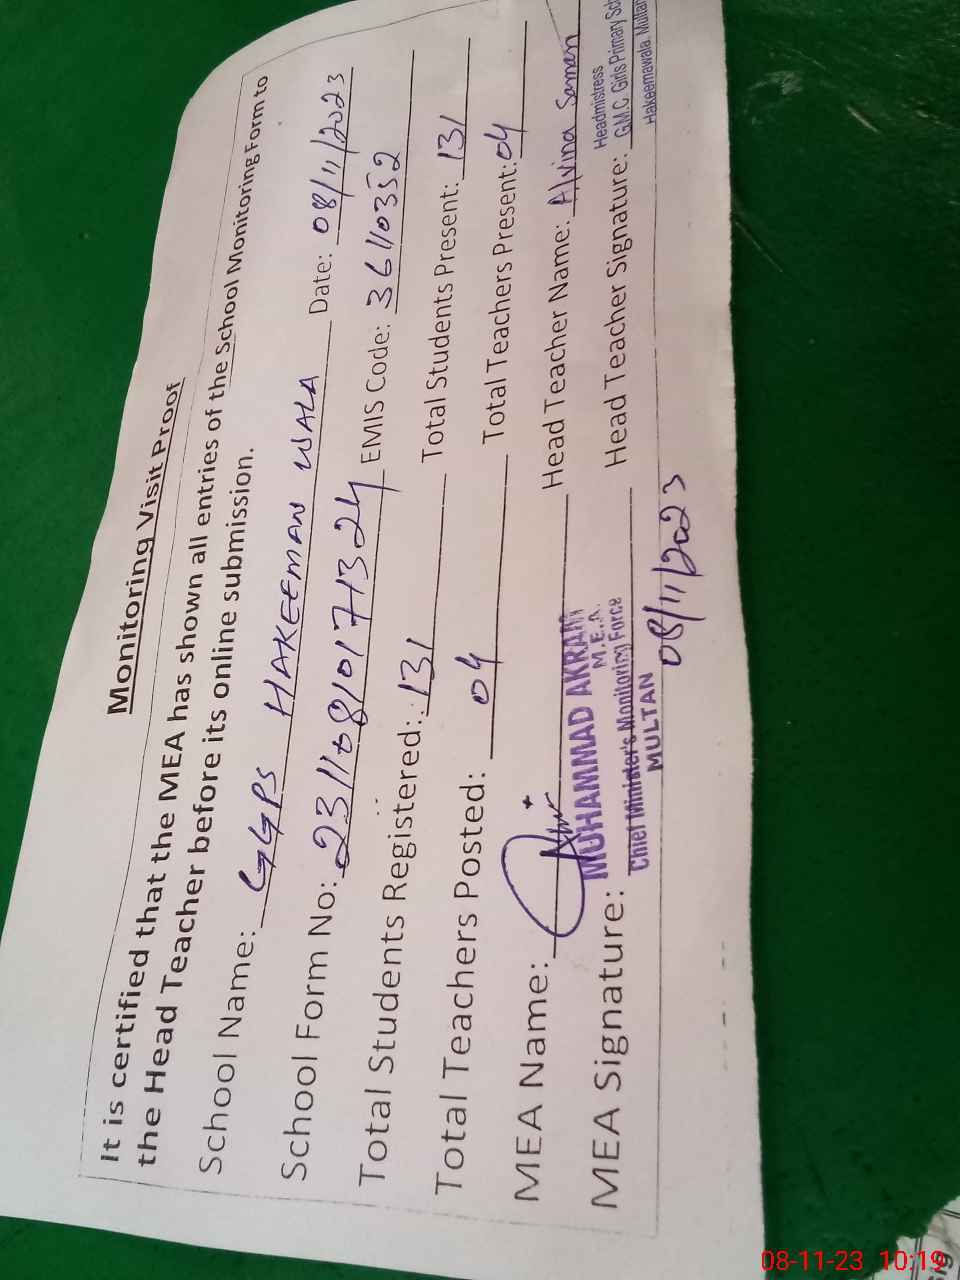 Monitoring Visit Proof
It is certified that the MEA has shown all entries of the School Monitoring Form to
the Head Teacher before its online submission.
School Name: GGPS HAKEEMAN WALA Date: 08/11/2023
School Form No: 23110810171324 EMIS Code: 36110352
Total Students Registered: 131 Total Students Present: 131
Total Teachers Posted: 04 Total Teachers Present: 04
MEA Name: Head Teacher Name: Alvina Saman
MUHAMMAD AKRAM
M.E.A.
Headmistress
MEA Signature: Chief Minister's Monitoring Force Head Teacher Signature: G.M.C. Girls Primary
MULTAN
Hakeemawala, Multan
08/11/2023
08-11-23 10:19